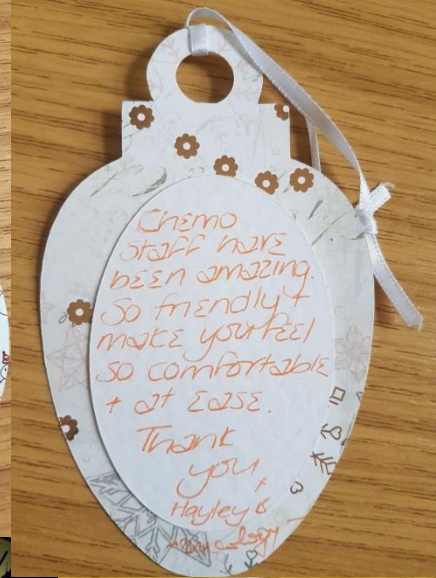 Chemo
staff have
been amazing.
So friendly +
make you feel
so comfortable
+ at Ease.
Thank
you
x
Hayley &